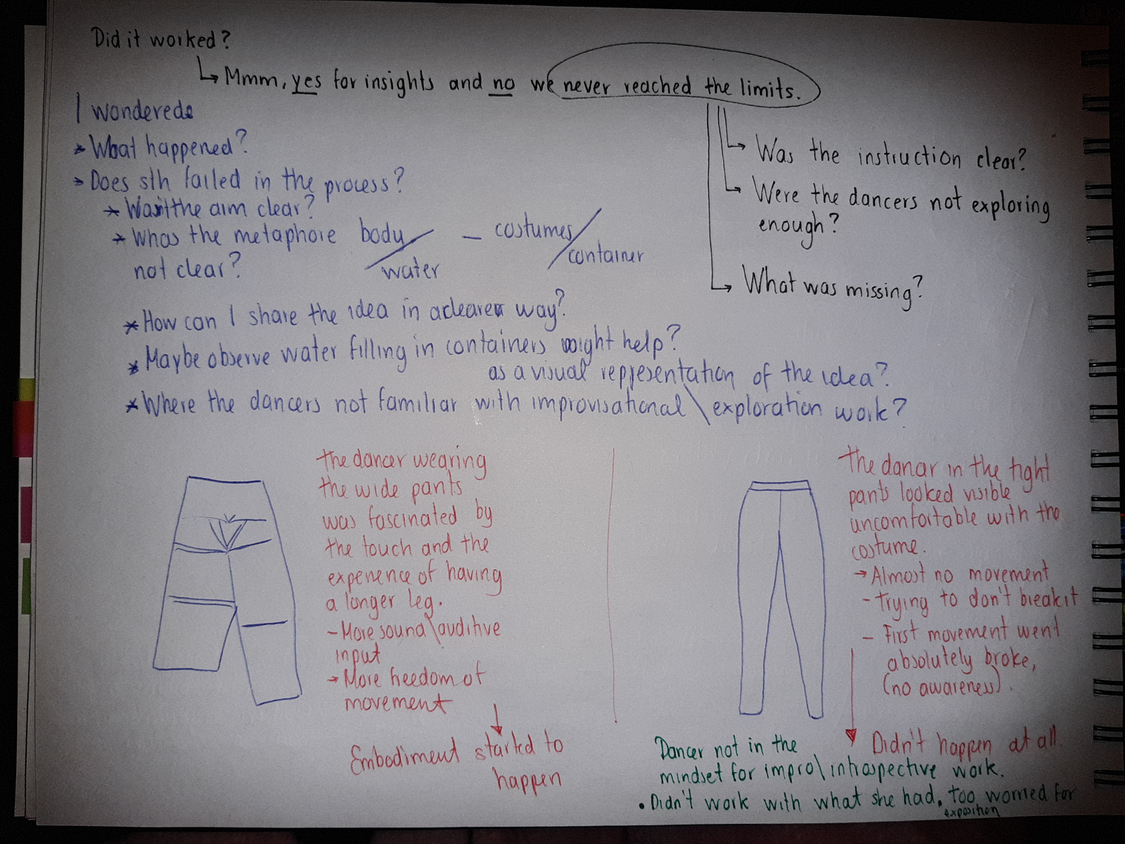 Did it worked?
↳ Mmm, yes for insights and no we never reached the limits.
I wondered:
* What happened?
* Does sth failed in the process?
* Was the aim clear?
* Whas the metaphore body/water – costumes/container
not clear?
* How can I share the idea in a clearer way?
* Maybe observe water filling in containers might help?
as a visual representation of the idea?
* Where the dancers not familiar with improvisational\exploration work?
↳ Was the instruction clear?
↳ Were the dancers not exploring
enough?
↳ What was missing?
the dancer wearing
the wide pants
was fascinated by
the touch and the
experience of having
a longer leg.
- More sound\auditive
input
→ More freedom of
movement
Embodiment started to
happen
the dancer in the tight
pants looked visible
uncomfortable with the
costume.
→ Almost no movement
- Trying to don't break it
- First movement went
absolutely broke,
(no awareness).
Didn't happen at all.
Dancer not in the
mindset for impro\introspective work.
• Didn't work with what she had, too worried for
exposition